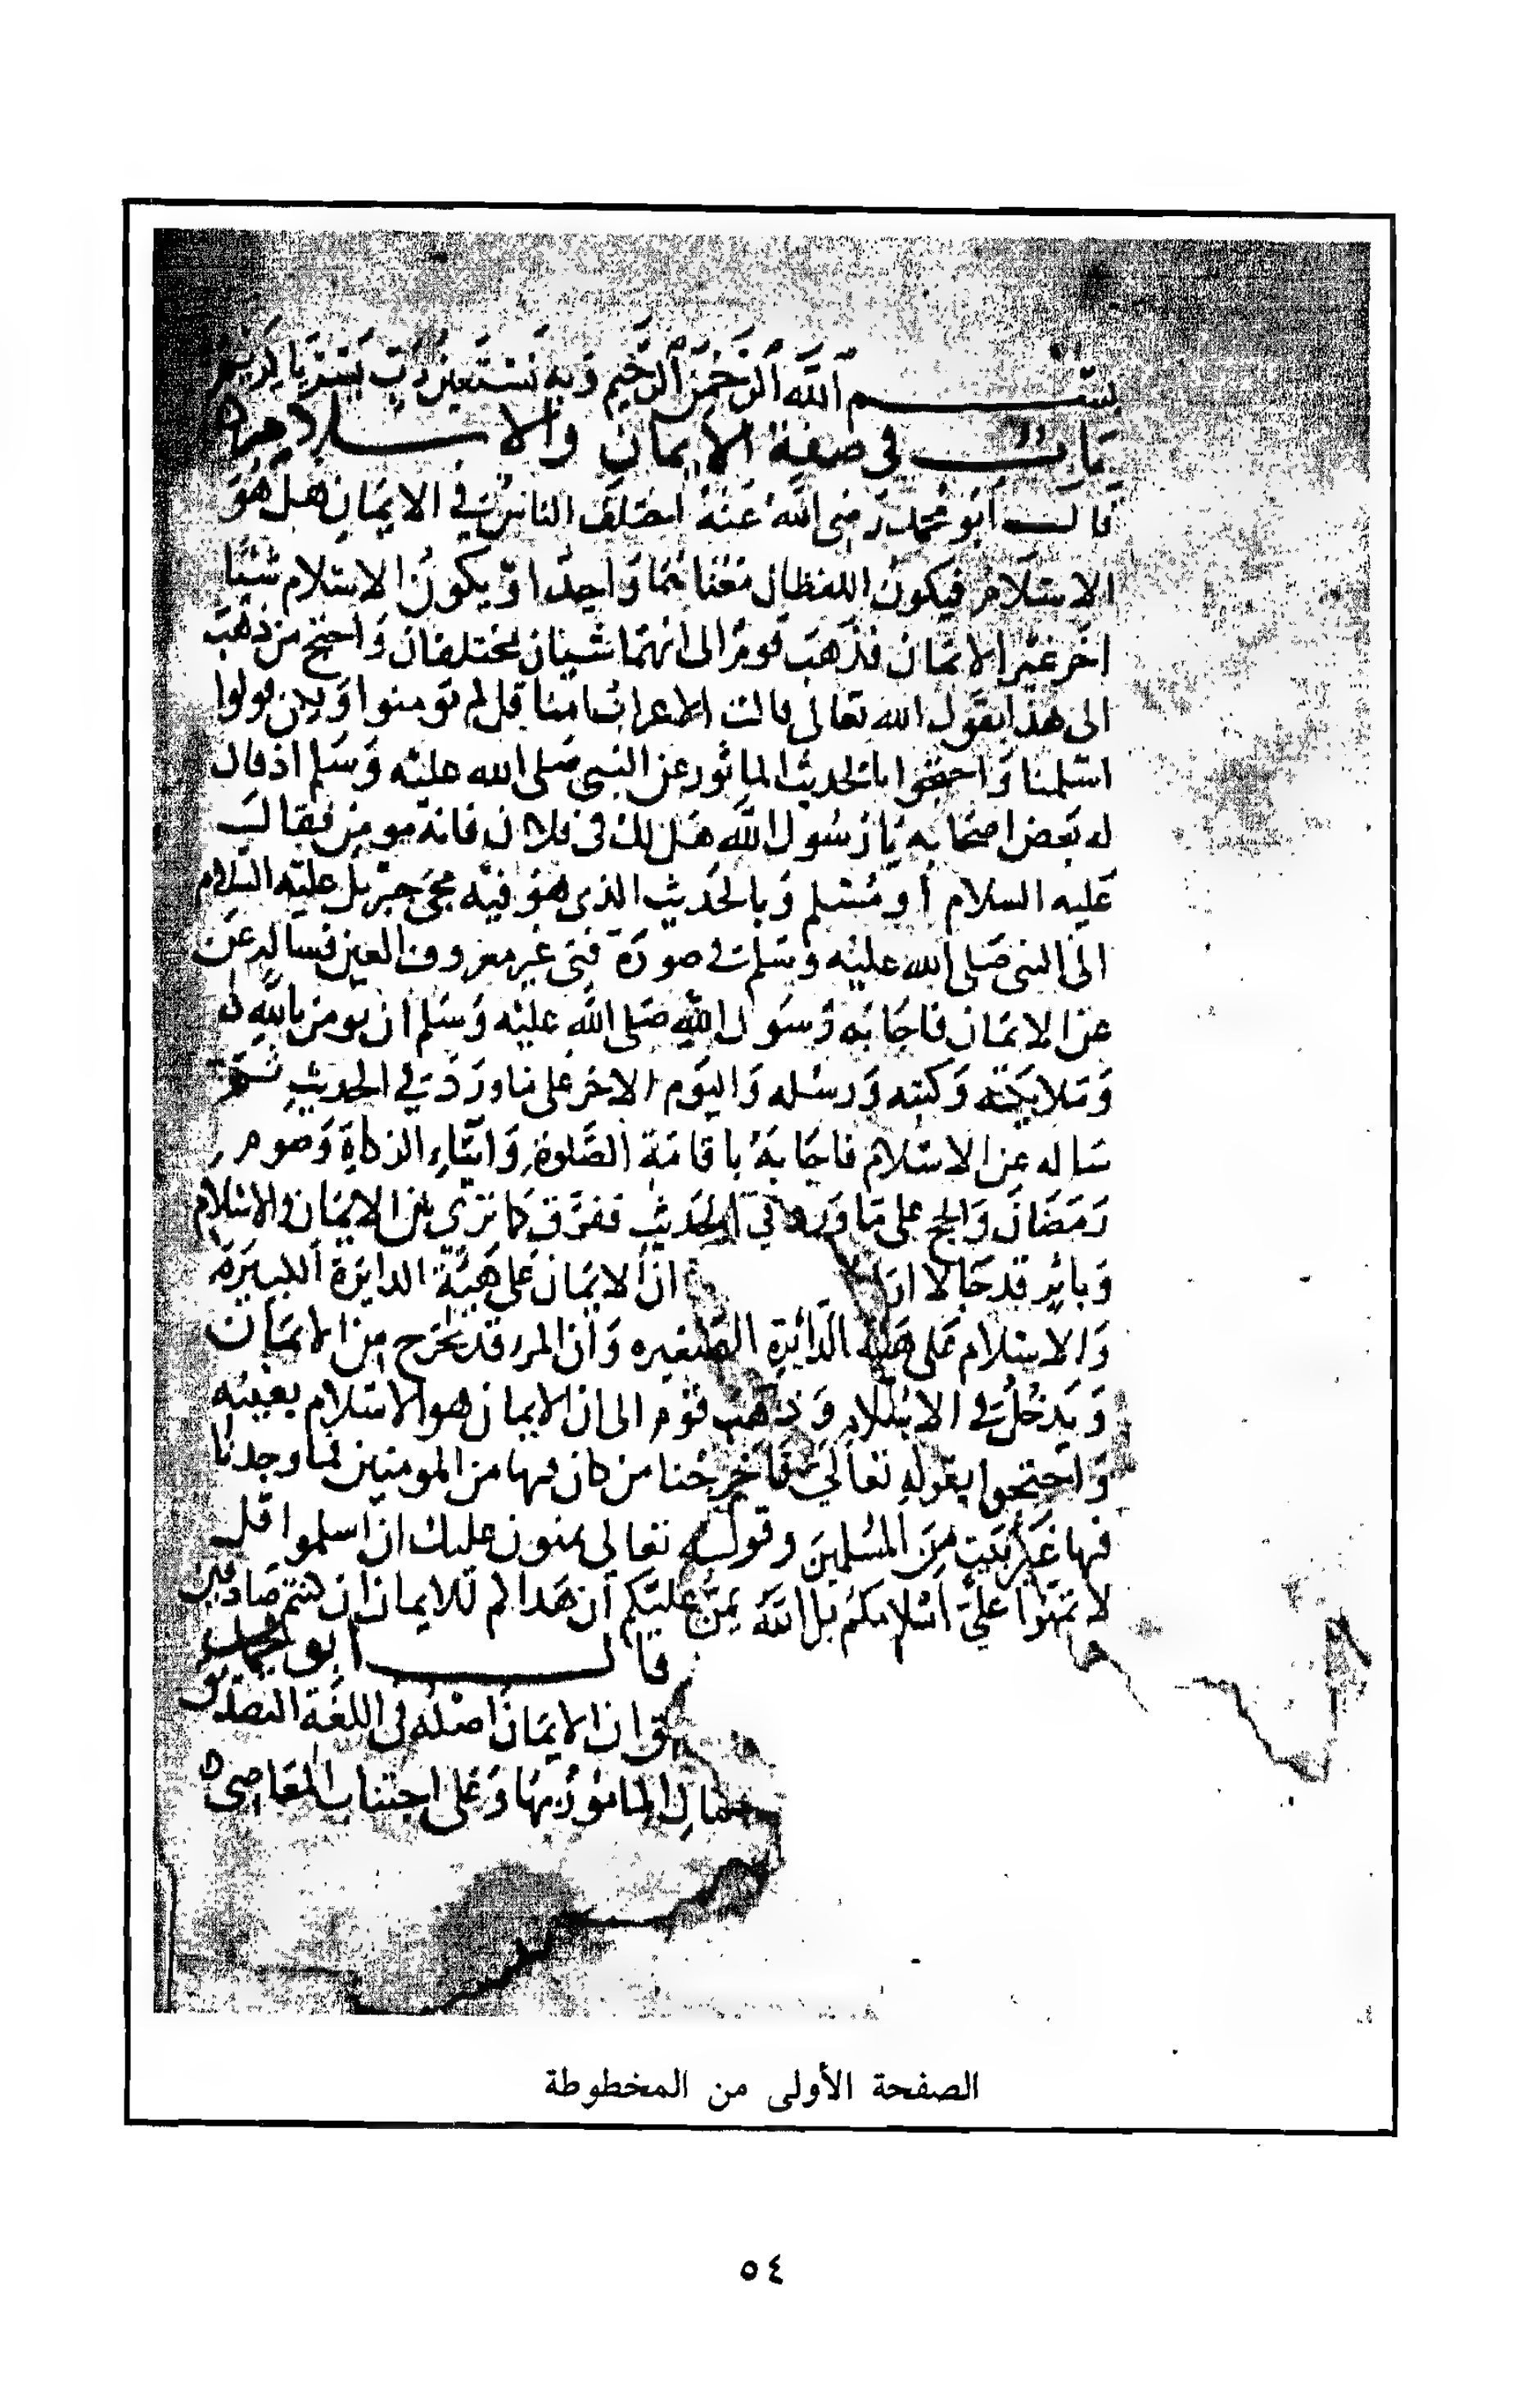 بســـم الله الرحمن الرحيم وبه نستعين رب يسر يا كريم
باب في صفة الإيمان والاسلام
قال ابو محمد رضى الله عنه اختلف الناس في الايمان هل هو
الاسلام فيكون اللفظان معناهما واحدا او يكون الاسلام شيا
اخر غير الايمان فذهب قوم الى انهما شيان مختلفان واحتج من ذهب
الى هذا بقول الله تعالى قالت الاعراب امنا قل لم تومنوا ولكن قولوا
اسلمنا واحتجوا بالحديث الماثور عن النبي صلى الله عليه وسلم اذ قال
له بعض اصحابه يا رسول الله هل لك في فلان فانه مومن فقال
عليه السلام أو مسلم وبالحديث الذي هو فيه مجى جبريل عليه السلام
الى النبي صلى الله عليه وسلم في صورة فتى غير معروف العين فساله عن
عن الايمان فاجابه رسول الله صلى الله عليه وسلم ان يومن بالله
وملايكته وكتبه ورسله واليوم الاخر على ما ورد في الحديث ثم
ساله عن الاسلام فاجابه باقامة الصلوة وايتاء الزكاة وصوم
رمضان والحج على ما ورد في الحديث ففرق كما ترى بين الايمان والاسلام
قد جا الا ان الايمان على هيئة الدايرة الكبيرة
والاسلام على هيئة الدائرة الصغيره وان المرء قد يخرج من الايمان
ويدخل في الاسلام وذهب قوم الى ان الايمان هو الاسلام بعينه
واحتجوا بقوله تعالى فاخرجنا من كان فيها من المومنين فما وجدنا
فيها غير بيت من المسلمين وقوله تعالى يمنون عليك ان اسلموا قل
لا تمنوا علي اسلامكم بل الله يمن عليكم ان هداكم للايمان ان كنتم صادقين
قال ابو محمد
ان الايمان اصله في اللغة التصديق
المامور بها وعلى اجتناب المعاصي
الصفحة الأولى من المخطوطة
٥٤